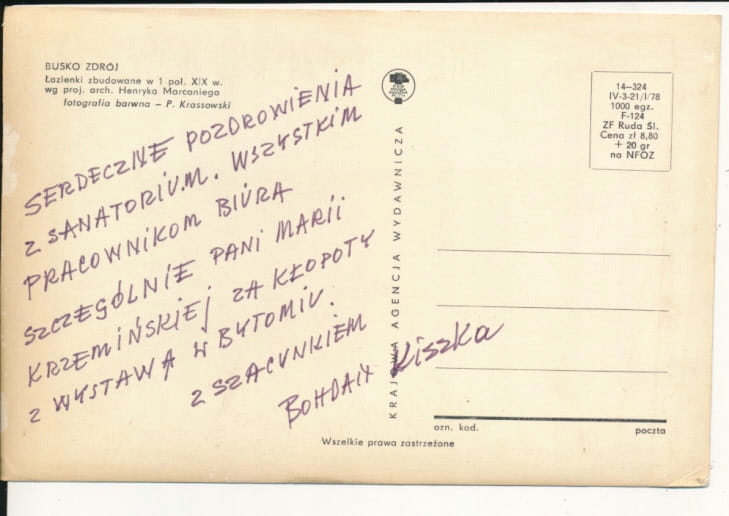 BUSKO ZDRÓJ
Łazienki zbudowane w 1 poł. XIX w.
wg proj. arch. Henryka Marconiego
fotografia barwna — P. Krassowski
SERDECZNE POZDROWIENIA
Z SANATORIUM. WSZYSTKIM
PRACOWNIKOM BIURA
SZCZEGÓLNIE PANI MARII
KRZEMIŃSKIEJ ZA KŁOPOTY
Z WYSTAWĄ W BYTOMIU.
Z SZACUNKIEM
BOHDAN Kiszka
KRAJOWA AGENCJA WYDAWNICZA
14—324
IV-3-21/I/78
1000 egz.
F-124
ZF Ruda Śl.
Cena zł 8,80
+ 20 gr
na NFOZ
ozn. kod.
poczta
Wszelkie prawa zastrzeżone